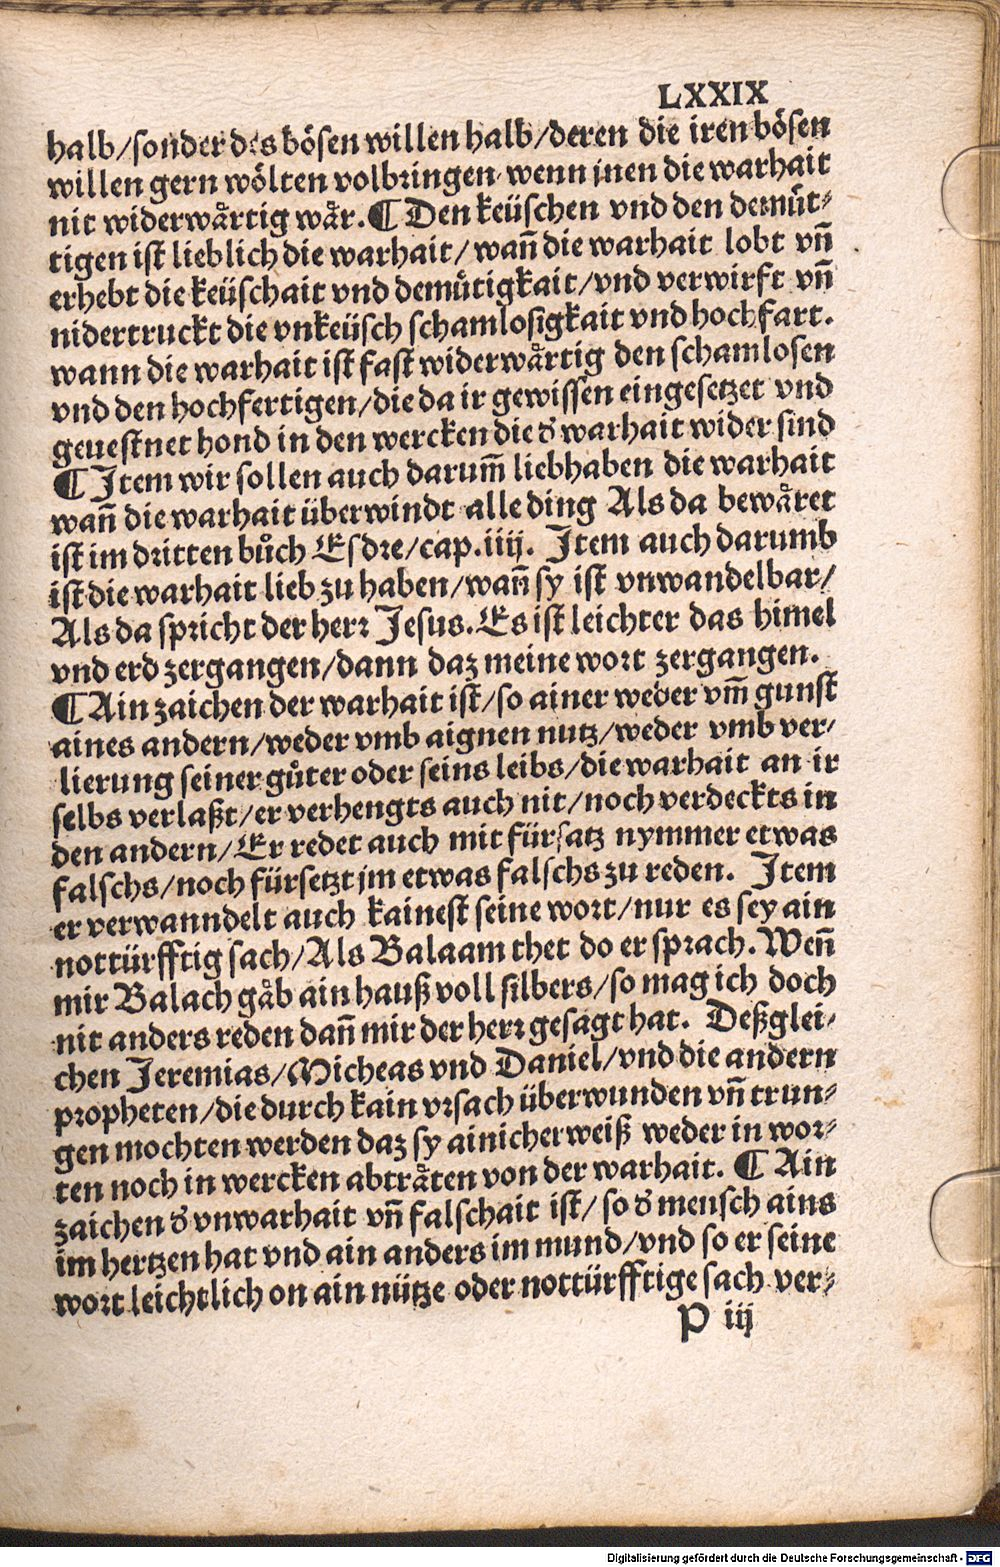 LXXIX
halb/sonder des bösen willen halb/deren die iren bösen
willen gern wölten volbringen wenn jnen die warhait
nit widerwaͤrtig waͤr. ¶ Den keüschen vnd den demuͤt⸗
tigen ist lieblich die warhait/wañ die warhait lobt vñ
erhebt die keüschait vnd demuͤtigkait/vnd verwirft vñ
nidertruckt die vnkeüsch schamlosigkait vnd hochfart.
wann die warhait ist fast widerwaͤrtig den schamlosen
vnd den hochfertigen/die da ir gewissen eingesetzet vnd
geuestnet hond in den wercken die d̕ warhait wider sind
¶ Item wir sollen auch darum̃ liebhaben die warhait
wañ die warhait überwindt alle ding Als da bewaͤret
ist im dritten buͦch Esdre/cap.iiij. Item auch darumb
ist die warhait lieb zu haben/wañ sy ist vnwandelbar/
Als da spricht der herr Jesus. Es ist leichter das himel
vnd erd zergangen/dann daz meine wort zergangen.
¶ Ain zaichen der warhait ist/so ainer weder vm̃ gunst
aines andern/weder vmb aignen nutz/weder vmb ver⸗
lierung seiner guͤter oder seins leibs/die warhait an ir
selbs verlaßt/er verhengts auch nit/noch verdeckts in
den andern/Er redet auch mit fürsatz nymmer etwas
falschs/noch fürsetzt jm etwas falschs zu reden. Item
er verwanndelt auch kainest seine wort/nur es sey ain
nottürfftig sach/Als Balaam thet do er sprach. Weñ
mir Balach gaͤb ain hauß voll silbers/so mag ich doch
nit anders reden dañ mir der herr gesagt hat. Deßglei⸗
chen Jeremias/Micheas vnd Daniel/vnd die andern
propheten/die durch kain vrsach überwunden vñ trun⸗
gen mochten werden daz sy ainicherweiß weder in wor⸗
ten noch in wercken abtraͤten von der warhait. ¶ Ain
zaichen d̕ vnwarhait vñ falschait ist/so d̕ mensch ains
im hertzen hat vnd ain anders im mund/vnd so er seine
wort leichtlich on ain nütze oder nottürfftige sach ver⸗
P iij
Digitalisierung gefördert durch die Deutsche Forschungsgemeinschaft - DFG